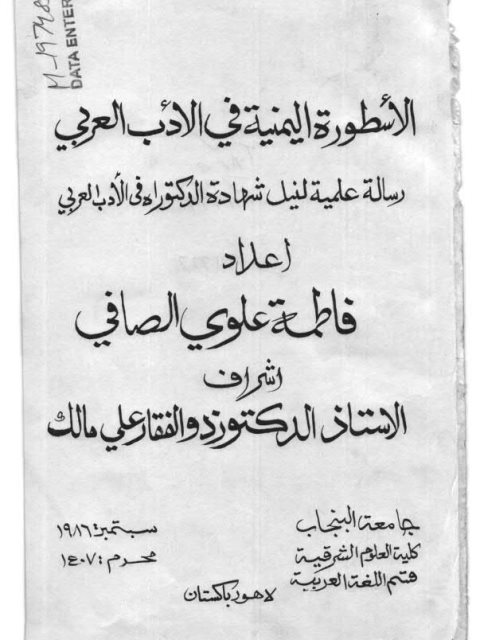 M-19748
DATA ENTER
الأسطورة اليمنية في الأدب العربي
رسالة علمية لنيل شهادة الدكتوراه في الأدب العربي
إعداد
فاطمة علوي الصافي
اشراف
الاستاذ الدكتور ذوالفقار علي مالك
جامعة البنجاب
كلية العلوم الشرقية
قسم اللغة العربية
سبتمبر: ١٩٨٦
محرم: ١٤٠٧
لاهور باكستان